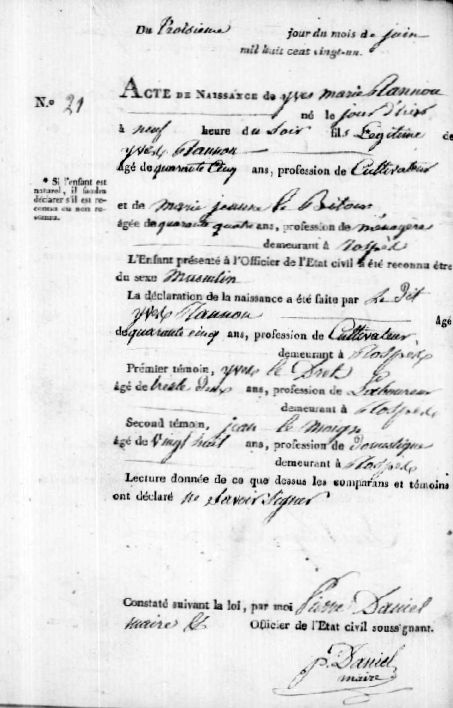 Du troisieme jour du mois de juin
mil huit cent vingt-un.
N.º 21
ACTE DE NAISSANCE de yves marie
né le jour d'hier
à neuf heure du soir fils Legitime de
yves
âgé de quarante cinq ans, profession de Cultivateur
* Si l'enfant est
naturel, il faudra
déclarer s'il est re-
connu ou non re-
connu.
et de marie jeanne le Bitous
âgée de quarante quatre ans, profession de ménagere
demeurant à
L'Enfant présenté à l'Officier de l'Etat civil a été reconnu être
du sexe Masculin
La déclaration de la naissance a été faite par Le Dit
yves âgé
de quarante cinq ans, profession de Cultivateur
demeurant à
Prémier témoin, yves le
âgé de trente Deux ans, profession de Laboureur
demeurant à
Second témoin, jean le moign
âgé de Vingt huit ans, profession de Domestique
demeurant à
Lecture donnée de ce que dessus les comparans et témoins
ont déclaré ne Savoir Signer
Constaté suivant la loi, par moi Pierre Daniel
maire Officier de l'Etat civil soussignant.
p. Daniel
maire